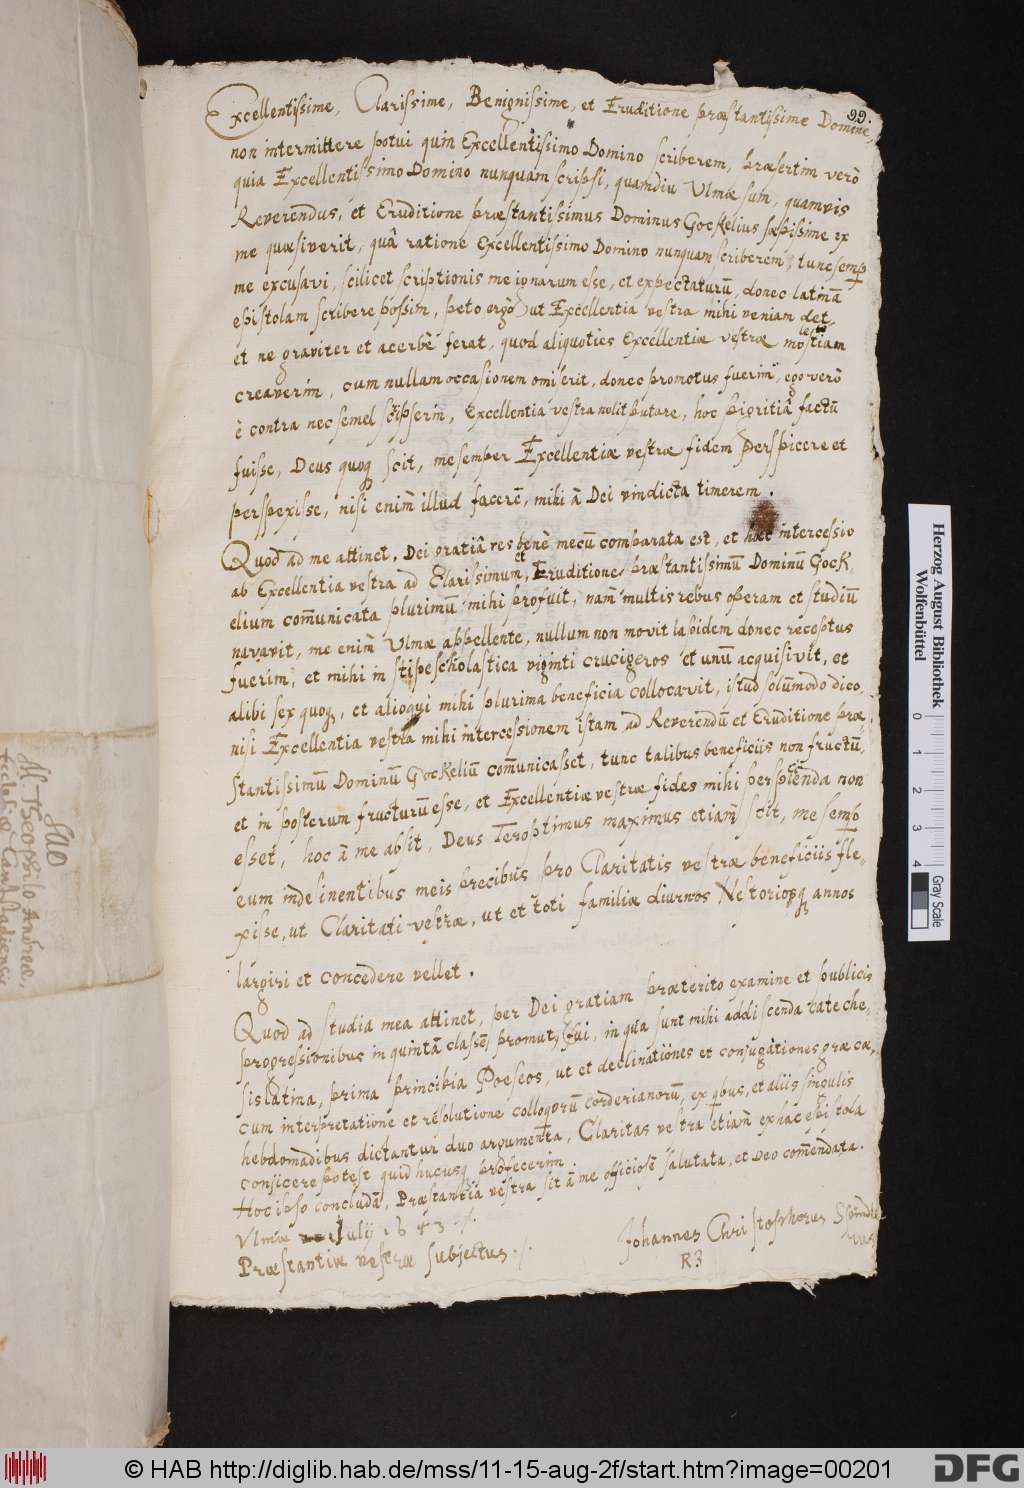 99.
Excellentissime, Clarissime, Benignissime, et Eruditione præstantissime Domine,
non intermittere potui quin Excellentissimo Domino scriberem, præsertim verò
quia Excellentissimo Domino nunquam scripsi, quamdiu Ulmæ sum, quamvis
Reverendus, et Eruditione præstantissimus Dominus Gockelius sæpissime ex
me quæsiverit, quâ ratione Excellentissimo Domino nunquam scriberem, tunc semp
me excusavi, scilicet scriptionis me ignarum esse, et expectaturū, donec latinā
epistolam scribere possim, peto ergò ut Excellentia vestra mihi veniam det,
et ne graviter et acerbè ferat, quod aliquoties Excellentiæ vestræ molestiam
creaverim, cum nullam occasionem omiserit, donec promotus fuerim, ego verò
è contra nec semel scripserim, Excellentia vestra nolit putare, hoc pigritiâ factū
fuisse, Deus quoq scit, me semper Excellentiæ vestræ fidem perspicere et
perspexisse, nisi enim̄ illud facerē, mihi à Dei vindicta timerem.
Quod ad me attinet, Dei gratiâ res benè mecū comparata est, et hæc intercessio
ab Excellentia vestra ad Clarissimum, et Eruditione præstantissimū Dominū Gock,
elium com̄unicata plurimū mihi profuit, nam̄ multis rebus operam et studiū
navavit, me enim̄ Ulmæ appellente, nullum non movit lapidem donec receptus
fuerim, et mihi in stipe scholastica viginti crucigeros et unū acquisivit, et
alibi sex quoq, et alioqui mihi plurima beneficia collocavit, istud solum̄odo dico,
nisi Excellentia vestra mihi intercessionem istam ad Reverendū et Eruditione præ,
stantissimū Dominū Gockeliū com̄unicasset, tunc talibus beneficiis non fructū,
et in posterum fructurū esse, et Excellentiæ vestræ fides mihi perspicienda non
esset, hoc à me absit, Deus Teroptimus maximus etiam̄ scit, me semp
eum indesinentibus meis precibus pro Claritatis vestræ beneficiis fle,
xisse, ut Claritati vestræ, ut et toti familiæ diurnos Nestoriosq annos
largiri et concedere vellet.
Quod ad studia mea attinet, per Dei gratiam præterito examine et publicis
progressionibus in quintā classē promut9 fui, in qua sunt mihi addiscenda cateche,
sis latina, prima principia Poeseos, ut et declinationes et conjugationes græcæ,
cum interpretatione et resolutione colloqorū corderianorū, ex qbus, et aliis singulis
hebdomadibus dictantur duo argumenta, Claritas vestra etiam̄ ex hac epistola
conjicere potest quid hucusq profecerim.
Hoc ipso concludā, Præstantia vestra sit à me officiosē salutata, et Deo com̄endata.
Ulmæ Julij 1643 ./.
Præstantiæ vestræ subjectus ./.
Johannes Christophorus
R3
M. Theophilo Andreæ,
Herzog August Bibliothek
Wolfenbüttel
0 1 2 3 4
Gray Scale
© HAB http://diglib.hab.de/mss/11-15-aug-2f/start.htm?image=00201
DFG